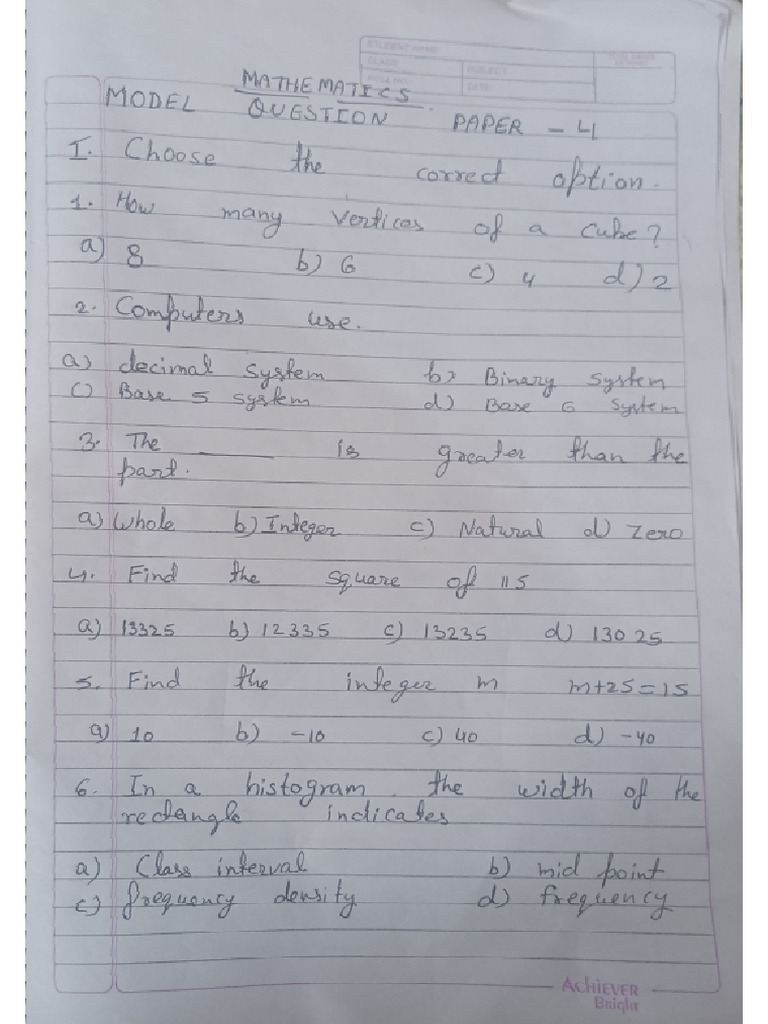 STUDENT NAME
CLASS
SUBJECT
ROLL NO.
DATE:
MATHEMATICS
MODEL QUESTION PAPER - 4
I. Choose the correct option.
1. How many vertices of a cube?
a) 8 b) 6 c) 4 d) 2
2. Computers use.
a) decimal system b) Binary system
c) Base 5 system d) Base 6 system
3. The ________ is greater than the
part.
a) Whole b) Integer c) Natural d) Zero
4. Find the square of 115
a) 13325 b) 12335 c) 13235 d) 13025
5. Find the integer m m+25=15
a) 10 b) -10 c) 40 d) -40
6. In a histogram the width of the
rectangle indicates
a) Class interval b) mid point
c) frequency density d) frequency
ACHIEVER